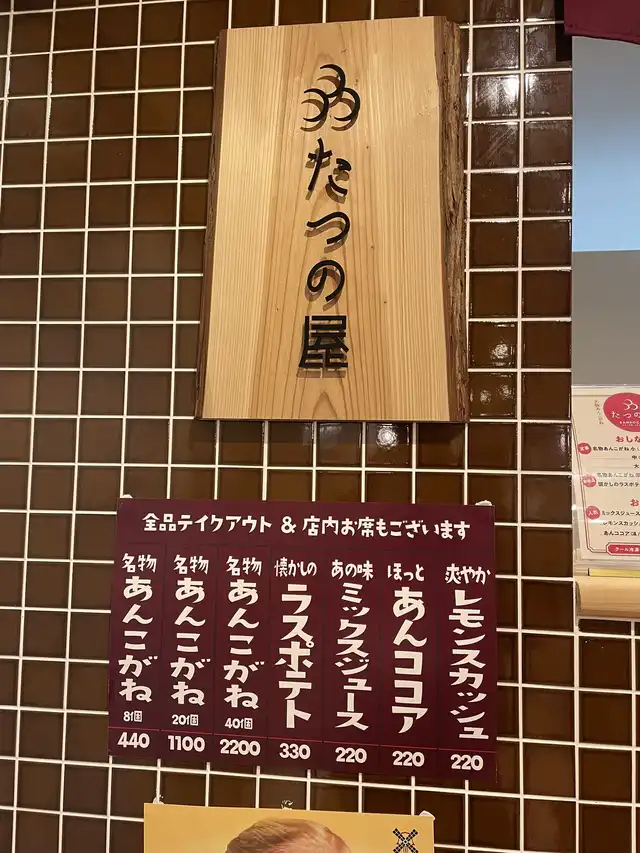 たつの屋
全品テイクアウト & 店内お席もございます
名物
あんこがね
8個
440
名物
あんこがね
20個
1100
名物
あんこがね
40個
2200
懐かしの
ラスポテト
330
あの味
ミックスジュース
220
ほっと
あんココア
220
爽やか
レモンスカッシュ
220
たつの
おしな
名物あんこがね
懐かしのラスポテ
人気
ミックスジュース
レモンスカッシュ
あんココア